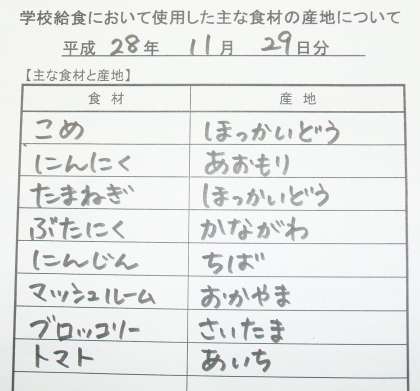 学校給食において使用した主な食材の産地について
平成 28 年 11 月 29 日分
【主な食材と産地】
食材 産地
こめ ほっかいどう
にんにく あおもり
たまねぎ ほっかいどう
ぶたにく かながわ
にんじん ちば
マッシュルーム おかやま
ブロッコリー さいたま
トマト あいち